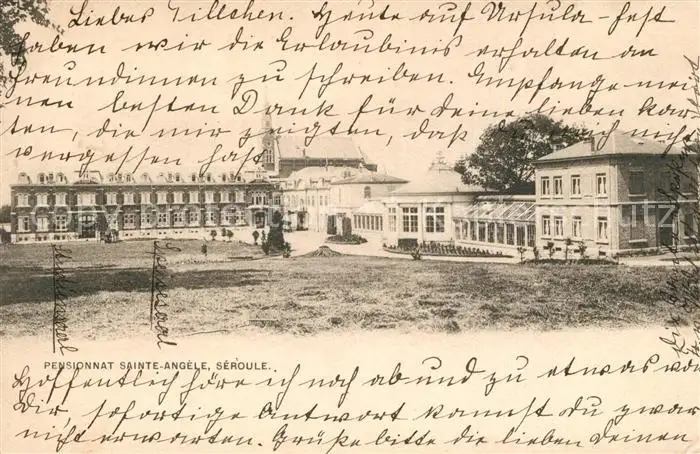 Liebes Tillchen. Heute auf Ursula-Fest
haben wir die Erlaubinis erhalten an
Freundinnen zu schreiben. Empfange mei-
nen besten Dank für Deine lieben Kar-
ten, die mir zeigten, daß Du mich nicht
vergessen hast.
PENSIONNAT SAINTE-ANGÈLE, SÉROULE.
Hoffentlich höre ich noch ab und zu etwas von
Dir, sofortige Antwort kannst Du zwar
nicht erwarten. Grüße bitte die lieben Deinen